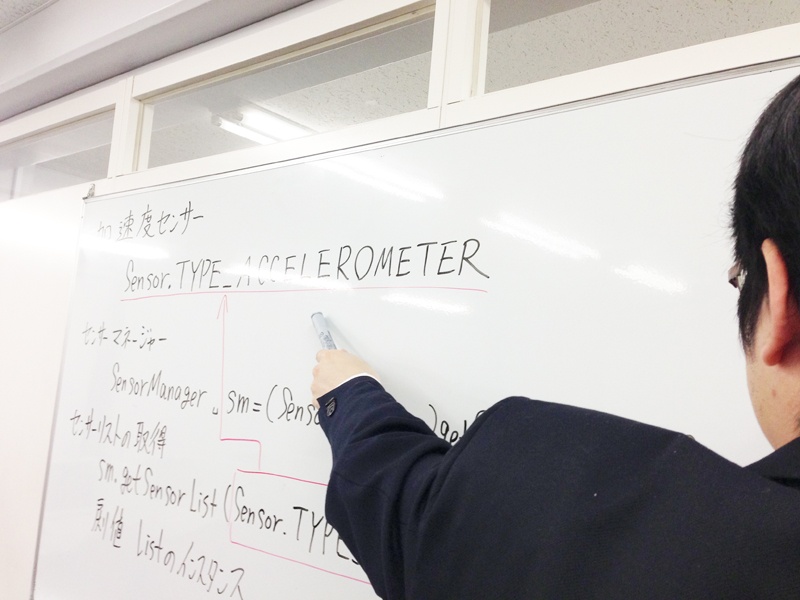 加速度センサー
Sensor.TYPE_ACCELEROMETER
センサーマネージャー
SensorManager␣sm=(Senso )get
センサーリストの取得
sm.getSensorList(Sensor.TYPE
戻り値 Listのインスタンス